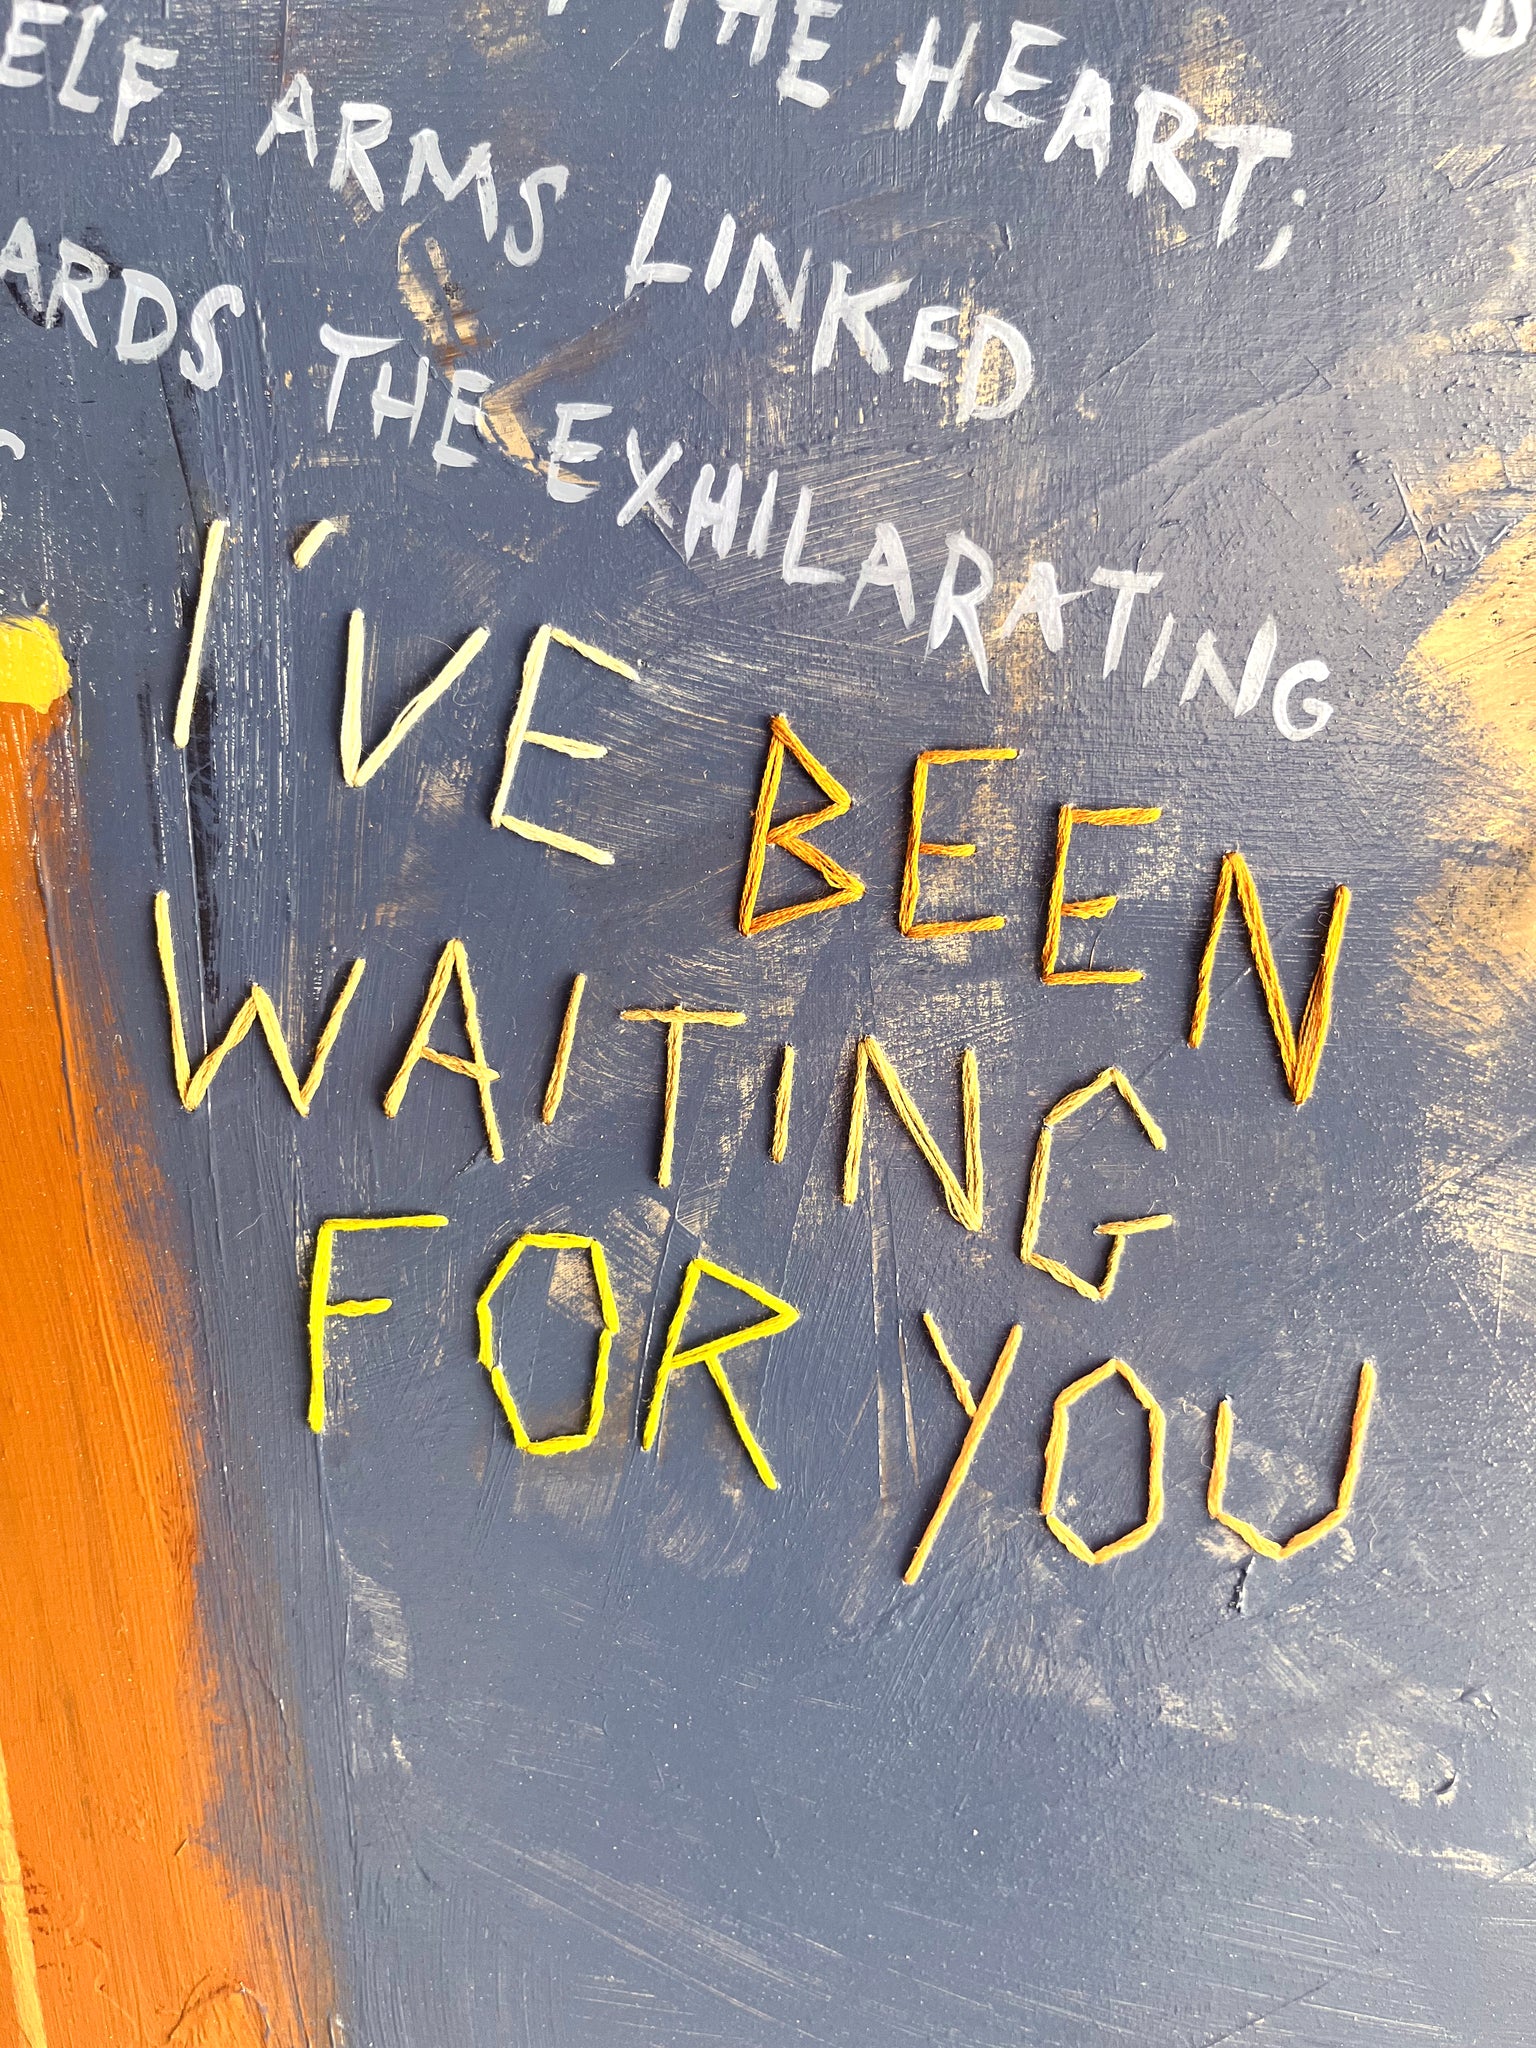 THE HEART;
ELF, ARMS LINKED
ARDS THE EXHILARATING
I'VE BEEN
WAITING
FOR YOU